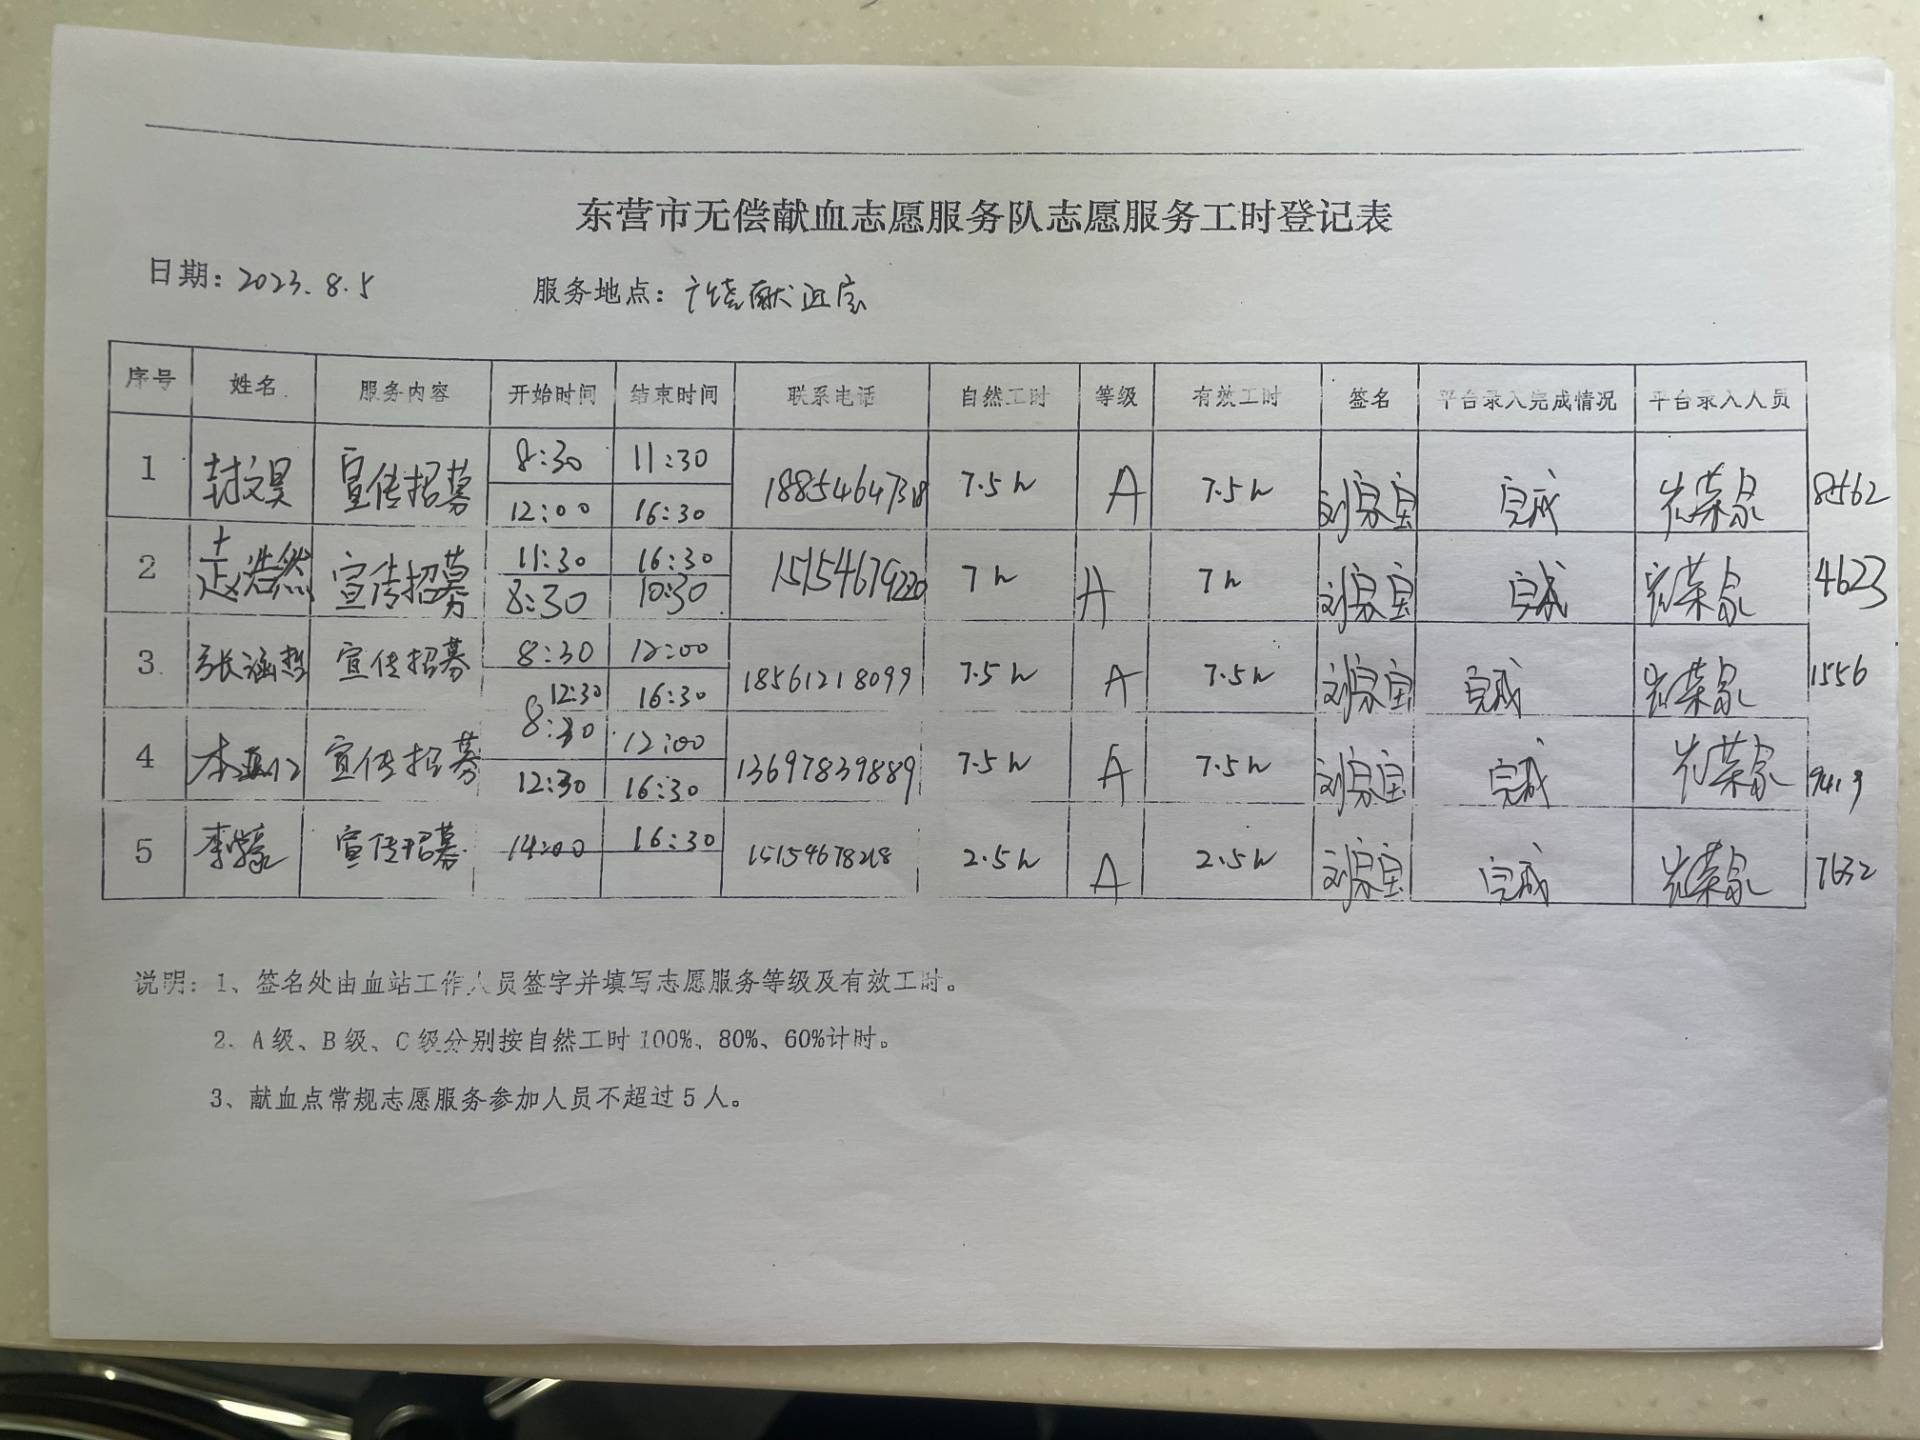 东营市无偿献血志愿服务队志愿服务工时登记表
日期: 2023.8.5 服务地点: 广饶献血屋
序号 姓名 服务内容 开始时间 结束时间 联系电话 自然工时 等级 有效工时 签名 平台录入完成情况 平台录入人员
1 封文昊 宣传招募 8:30 11:30 18854647318 7.5h A 7.5h 刘家宝 完成 8562
12:00 16:30
2 赵浩然 宣传招募 11:30 16:30 15154679220 7h A 7h 刘家宝 完成 4623
8:30 10:30
3 张涵哲 宣传招募 8:30 12:00 18561218099 7.5h A 7.5h 刘家宝 完成 1556
12:30 16:30
4 宣传招募 8:30 12:00 13697839889 7.5h A 7.5h 刘家宝 完成
12:30 16:30
5 宣传招募 14:00 16:30 2.5h A 2.5h 刘家宝 完成 7632
说明: 1、签名处由血站工作人员签字并填写志愿服务等级及有效工时。
2、A级、B级、C级分别按自然工时100%、80%、60%计时。
3、献血点常规志愿服务参加人员不超过5人。